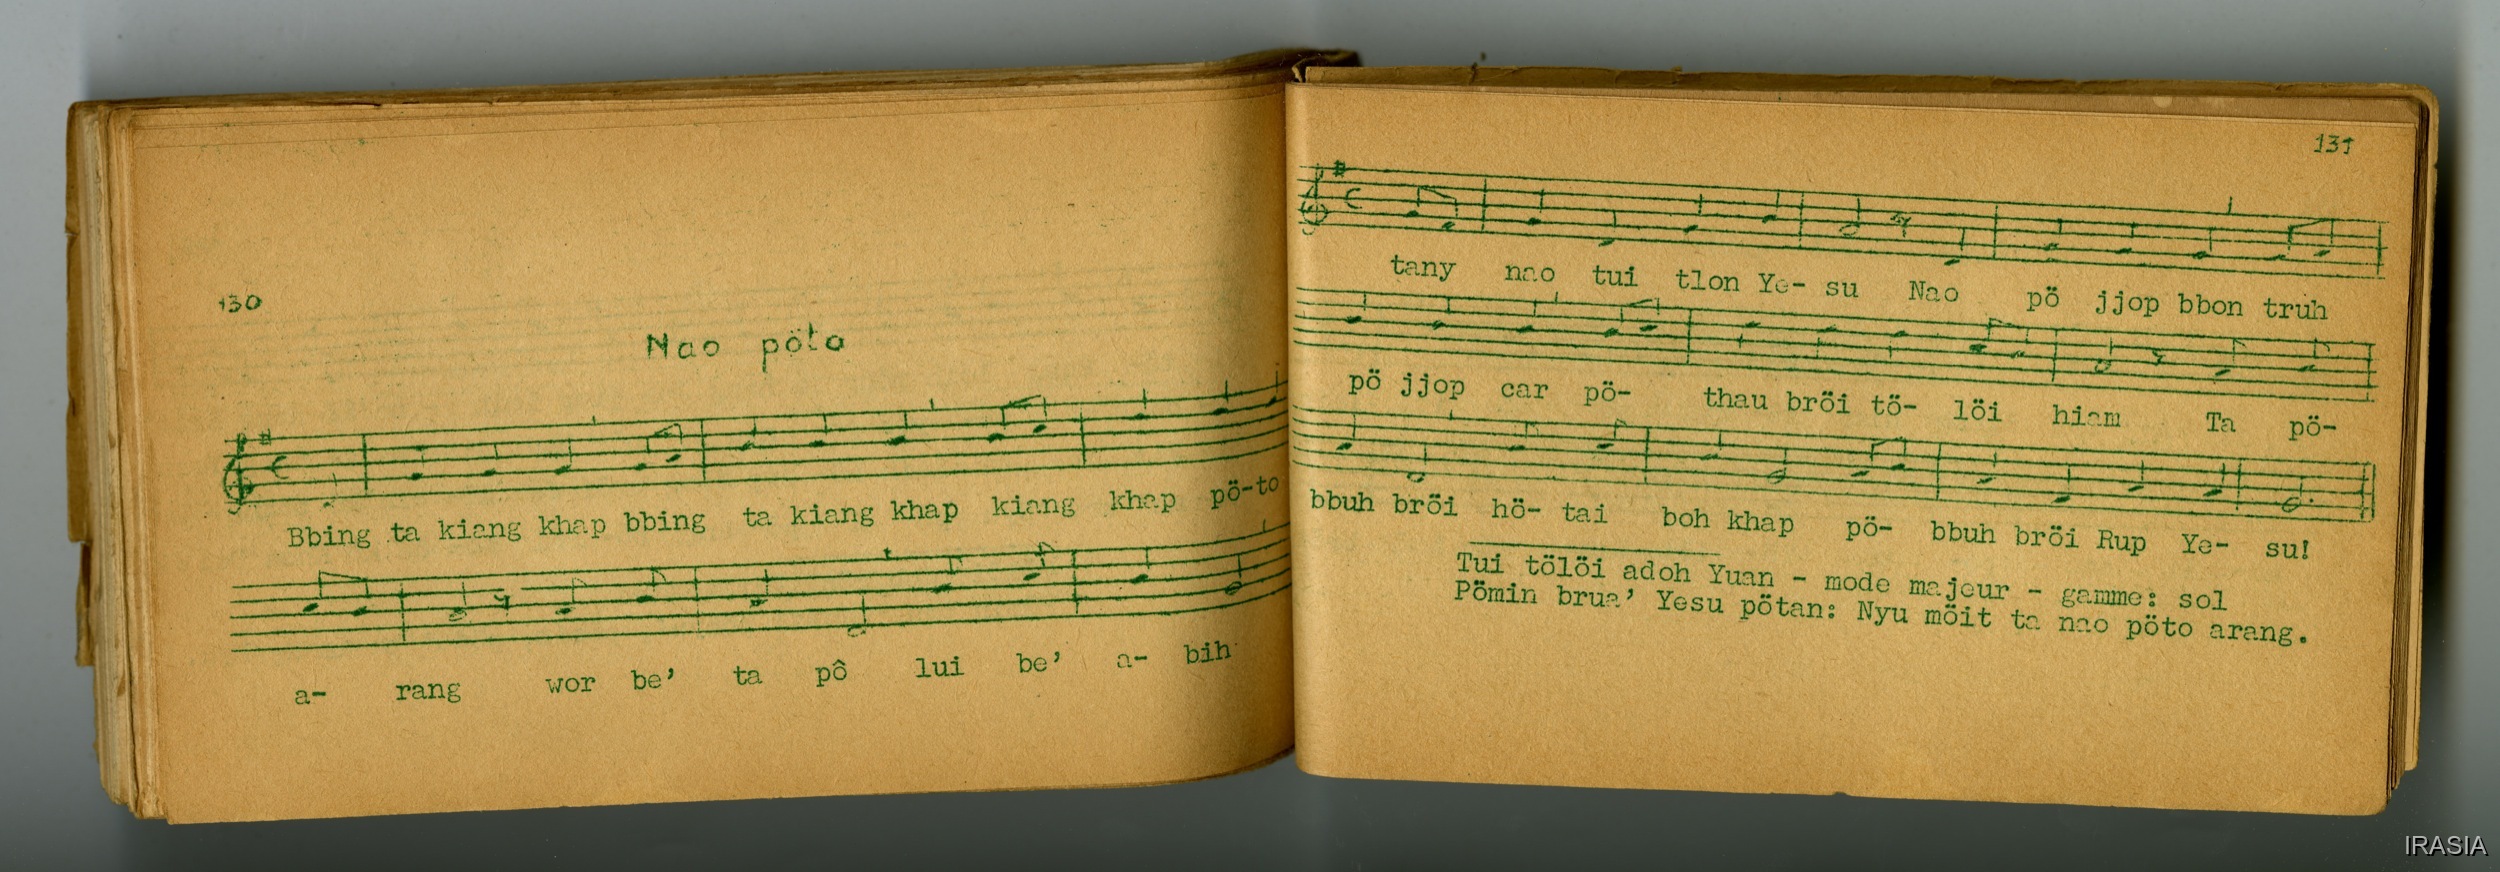 130
Nao pöto
Bbing ta kiang khap bbing ta kiang khap kiang khap pö-to
a- rang wor be' ta pô lui be' a- bih
131
tany nao tui tlon Ye- su Nao pö jjop bbon truh
pö jjop car pö- thau bröi tö- löi hiam Ta pö-
bbuh bröi hö- tai boh khap pö- bbuh bröi Rup Ye- su!
Tui tölöi adoh Yuan - mode majeur - gamme: sol
Pömin brua' Yesu pötan: Nyu möit ta nao pöto arang.
IRASIA